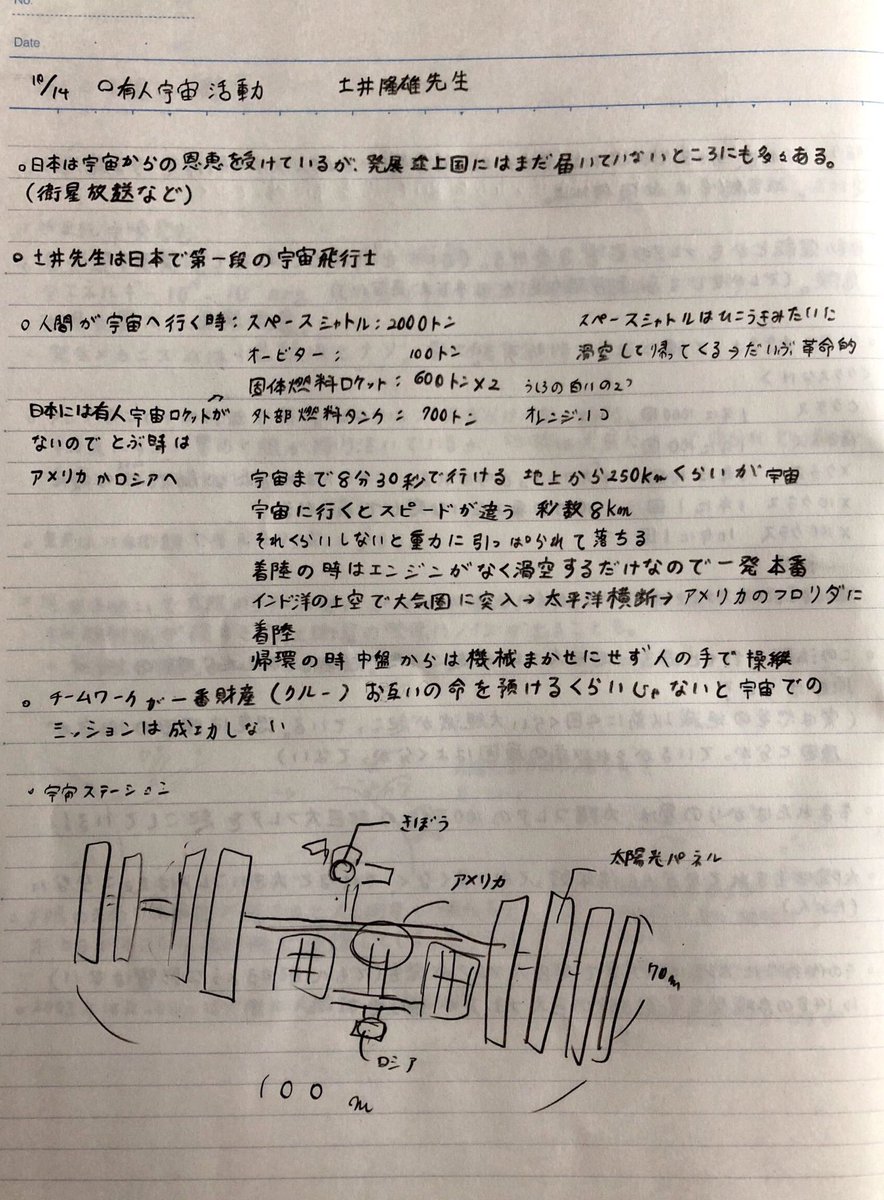 No.
Date
10/14 ○有人宇宙活動 土井隆雄先生
○日本は宇宙からの恩恵を受けているが、発展途上国にはまだ届いていないところにも多々ある。
(衛星放送など)
○土井先生は日本で第一段の宇宙飛行士
○人間が宇宙へ行く時:スペースシャトル:2000トン スペースシャトルはひこうきみたいに
オービター: 100トン 滑空して帰ってくる→だいぶ革命的
固体燃料ロケット:600トン×2 うしろの白いの2つ
日本には有人宇宙ロケットが 外部燃料タンク:700トン オレンジ.1コ
ないのでとぶ時は
アメリカかロシアへ 宇宙まで8分30秒で行ける 地上から250kmくらいが宇宙
宇宙に行くとスピードが違う 秒数8km
それくらいしないと重力に引っぱられて落ちる
着陸の時はエンジンがなく滑空するだけなので一発本番
インド洋の上空で大気圏に突入→太平洋横断→アメリカのフロリダに
着陸
帰還の時中盤からは機械まかせにせず人の手で操縦
○チームワークが一番財産(クルー)お互いの命を預けるくらいじゃないと宇宙での
ミッションは成功しない
・宇宙ステーション
きぼう
太陽光パネル
アメリカ
70m
ロシア
100m